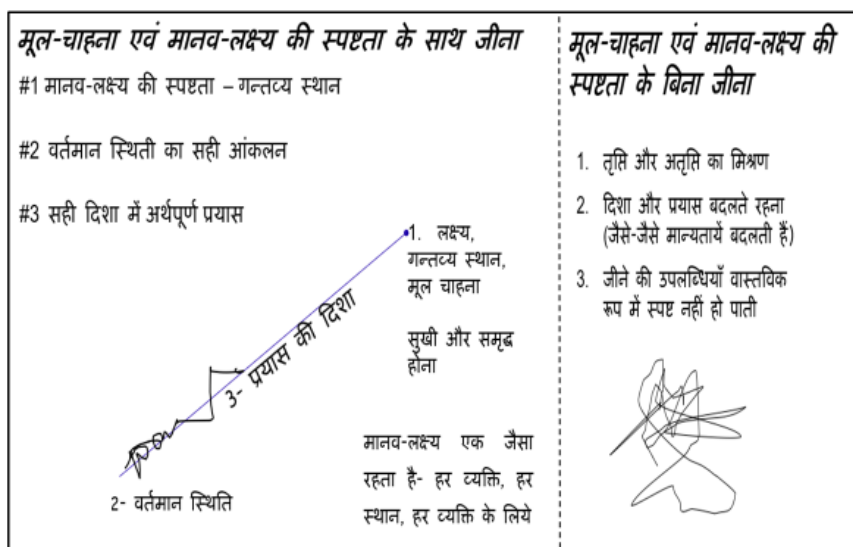 मूल-चाहना एवं मानव-लक्ष्य की स्पष्टता के साथ जीना
#1 मानव-लक्ष्य की स्पष्टता – गन्तव्य स्थान
#2 वर्तमान स्थिती का सही आंकलन
#3 सही दिशा में अर्थपूर्ण प्रयास
1. लक्ष्य,
गन्तव्य स्थान,
मूल चाहना
सुखी और समृद्ध
होना
3- प्रयास की दिशा
2- वर्तमान स्थिति
मानव-लक्ष्य एक जैसा
रहता है- हर व्यक्ति, हर
स्थान, हर व्यक्ति के लिये
मूल-चाहना एवं मानव-लक्ष्य की
स्पष्टता के बिना जीना
1. तृप्ति और अतृप्ति का मिश्रण
2. दिशा और प्रयास बदलते रहना
(जैसे-जैसे मान्यतायें बदलती हैं)
3. जीने की उपलब्धियाँ वास्तविक
रूप में स्पष्ट नहीं हो पाती